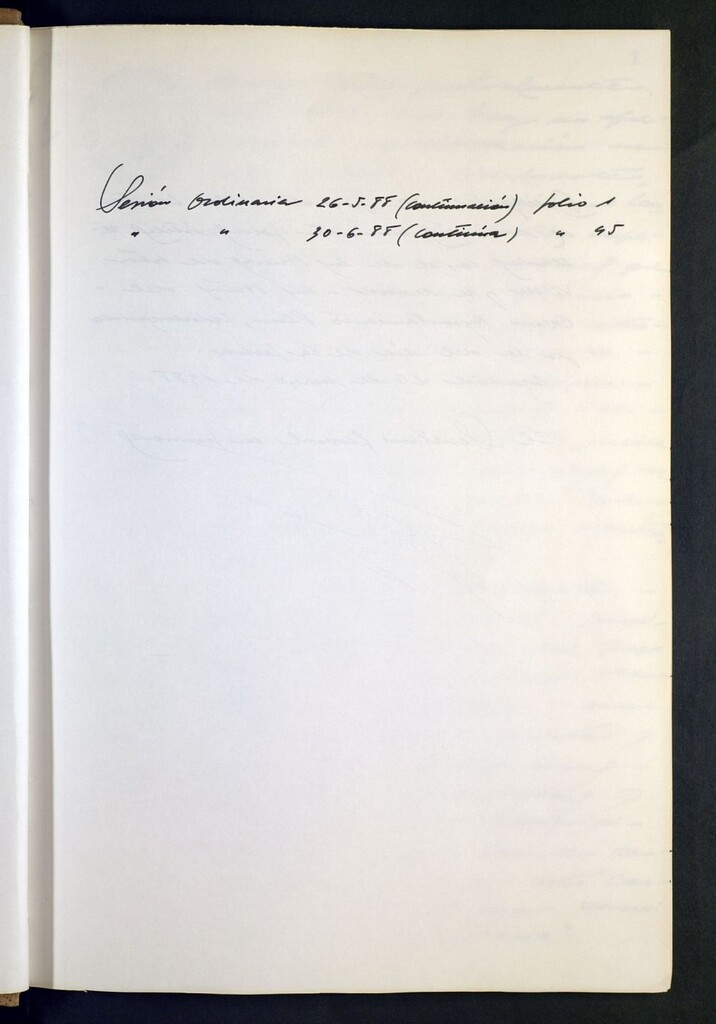 Sesión Ordinaria 26-5-88 (continuación) folio 1
" " 30-6-88 (continúa) " 45